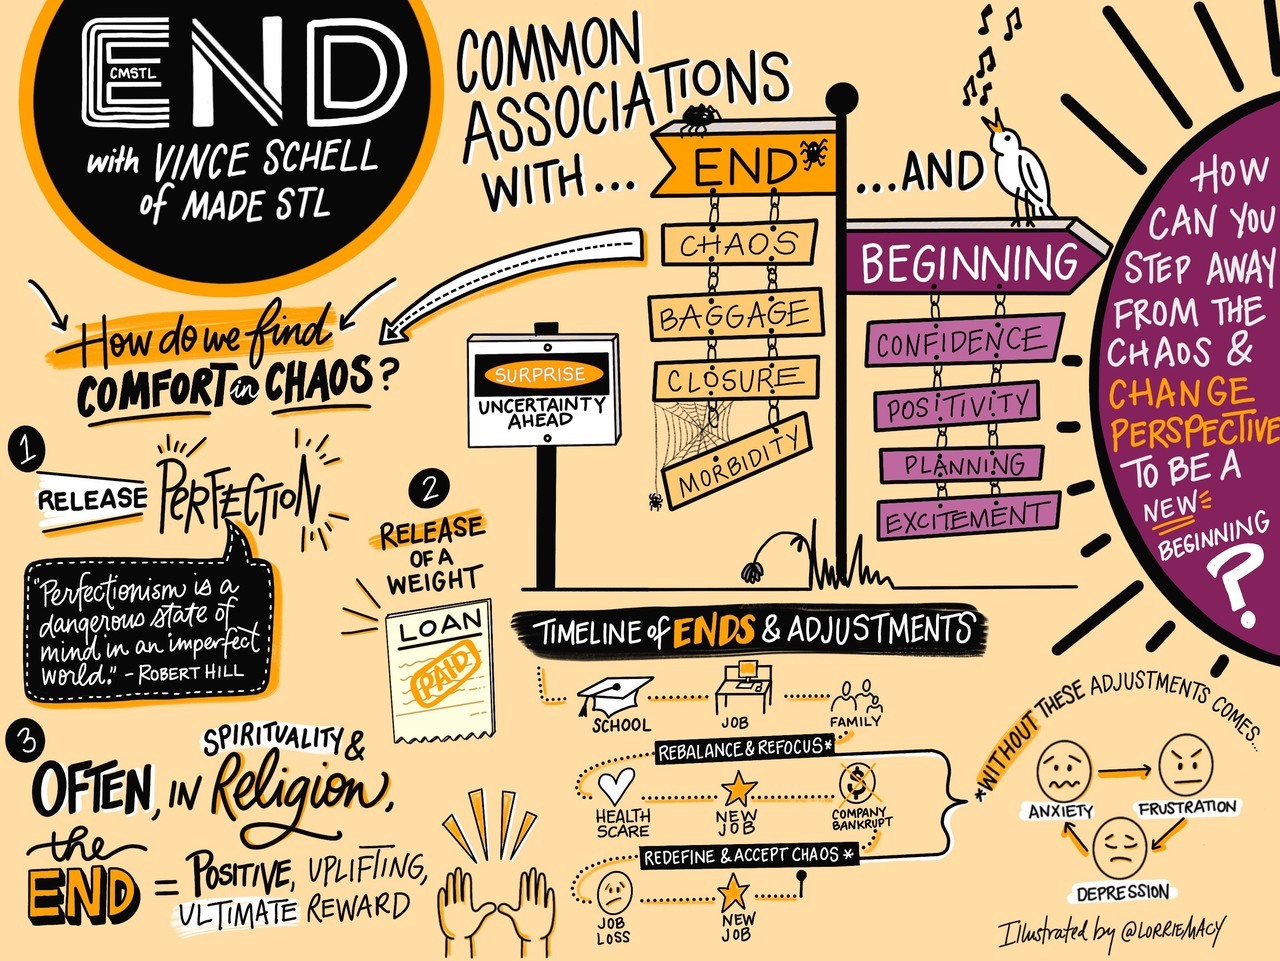 END
CMSTL
with VINCE SCHELL
of MADE STL
COMMON
ASSOCIATIONS
WITH...
END
CHAOS
BAGGAGE
CLOSURE
MORBIDITY
...AND
BEGINNING
CONFIDENCE
POSITIVITY
PLANNING
EXCITEMENT
HOW
CAN YOU
STEP AWAY
FROM THE
CHAOS &
CHANGE
PERSPECTIVE
TO BE A
NEW
BEGINNING
?
How do we find
COMFORT in CHAOS?
SURPRISE
UNCERTAINTY
AHEAD
1
RELEASE PERFECTION
"Perfectionism is a
dangerous state of
mind in an imperfect
world." - ROBERT HILL
2
RELEASE
OF A
WEIGHT
LOAN
PAID
3
SPIRITUALITY &
OFTEN, IN Religion,
the
END = POSITIVE, UPLIFTING,
ULTIMATE REWARD
TIMELINE of ENDS & ADJUSTMENTS
SCHOOL
JOB
FAMILY
REBALANCE & REFOCUS*
HEALTH
SCARE
NEW
JOB
$
COMPANY
BANKRUPT
REDEFINE & ACCEPT CHAOS *
JOB
LOSS
NEW
JOB
*WITHOUT THESE ADJUSTMENTS COMES...
ANXIETY
FRUSTRATION
DEPRESSION
Illustrated by @LORRIEMACY